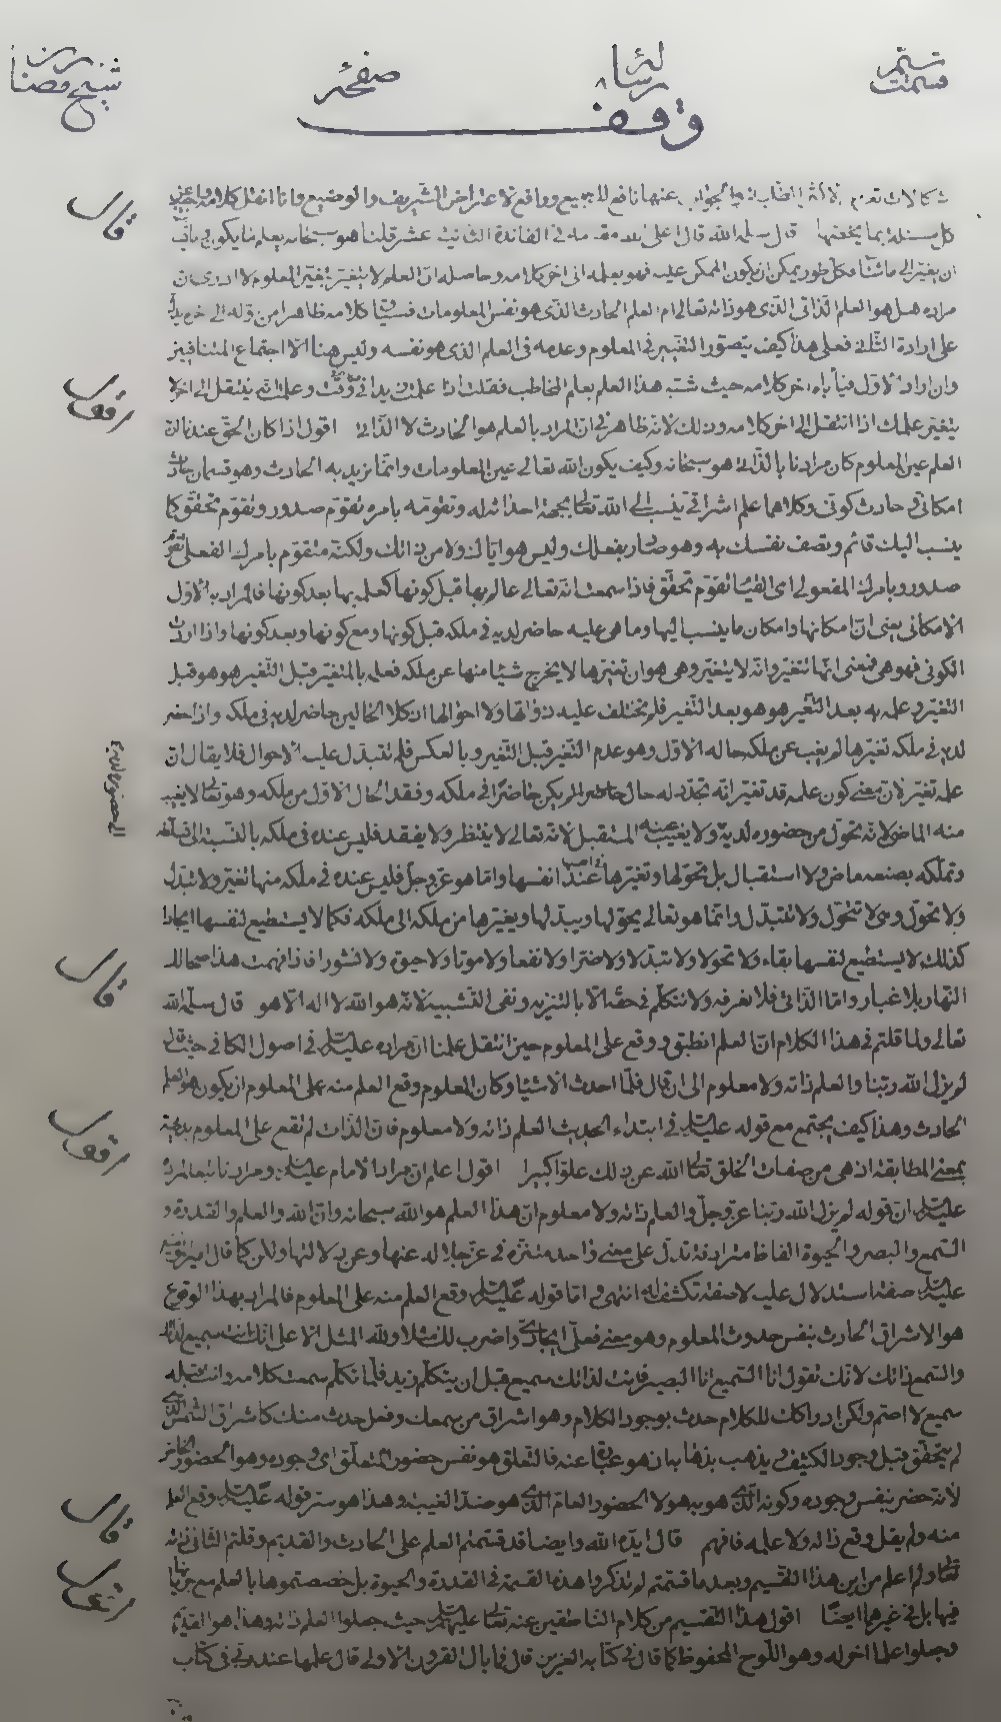 صفحۀ
رسالۀ
وقف
قال
كل مسئلة بما يخصها قال سلمه الله قال اعلى الله مقامه في الفائدة الثانية عشر قلنا هو سبحانه يعلم ما يكون
ان يغير الى ما شاء وكل طور يمكن ان يكون الممكن عليه فهو يعلمه الى اخر كلامه وحاصله ان العلم لا يتغير بتغير المعلوم ولا ادرى ان
مراده هل هو العلم الذاتى الذى هو ذاته تعالى ام العلم الحادث الذى هو نفس المعلومات فسياق كلامه ظاهرا من قوله الى اخره يدل
على ارادة الثانى فعلى هذا كيف يتصور التغيير فى المعلوم وعدمه فى العلم الذى هو نفسه وليس هنا الا اجتماع المتنافيين
وان اراد الاول فيأباه اخر كلامه حيث شبه هذا العلم بعلم المخاطب فقلت اذا علمت زيدا فى وقت وعلمت انه ينتقل الى اخر لا
اقول
يتغير علمك اذا انتقل الى اخر كلامه وذلك لانه ظاهر فى ان المراد بالعلم هو الحادث لا الذاتى اقول اذا كان الحق عندنا ان
العلم عين المعلوم كان مرادنا بالذاتى هو سبحانه وكيف يكون الله تعالى عين المعلومات وانما نريد به الحادث وهو قسمان حادث
امكانى وحادث كونى وكلاهما علم اشراقى ينسب الى الله تعالى بجهة احداثه له وتقومه بامره تقوم صدور وتقوم تحقق كما
ينسب اليك قائم وتصف نفسك به وهو صادر بفعلك وليس هو اياك ولا من ذاتك ولكنه متقوم بامرك الفعلى تقوم
صدور وبامرك المفعولى اى القيام تقوم تحقق فاذا سمعت انه تعالى عالم بها قبل كونها كعلمه بها بعد كونها فالمراد به الاول
الامكانى يعنى ان امكانها وامكان ما ينسب اليها وما هى عليه حاضر لديه فى ملكه قبل كونها ومع كونها وبعد كونها واذا اردت
الكونى فهو هى فمعنى انها تتغير وانه لا يتغير وهى هو ان تغيرها لا يخرج شيئا منها عن ملكه فعلمه بالمتغير قبل التغير هو هو قبل
التغير وعلمه به بعد التغير هو هو بعد التغير فلم يختلف عليه ذواتها ولا احوالها ان كلا الحالين حاضر لديه فى ملكه واذا حضر
لديه فى ملكه تغيرها لم يغب عن ملكه حاله الاول وهو عدم التغير قبل التغير وبالعكس فلم تتبدل عليه الاحوال فلا يقال ان
علمه تغير لان معنى كون علمه قد تغير انه تجدد له حال حاضر لم يكن حاضرا فى ملكه وفقد الحال الاول من ملكه وهو تعالى لا يغيب
منه الماضى لانه تحول من حضوره لديه ولا يغيب عنه المستقبل لانه تعالى لا ينتظر ولا يفقد فليس عنده فى ملكه بالنسبة الى
وتملكه بصنعه ماض ولا استقبال بل تحولها وتغيرها عند انفسها واما هو عز وجل فليس عنده فى ملكه منها تغير ولا تبدل
ولا تحول وهى لا تتحول ولا تتبدل وانما هو تعالى يحولها ويبدلها ويغيرها من ملكه الى ملكه فكما لا يستطيع لنفسها ايجادا
قال
كذلك لا يستطيع لنفسها بقاء ولا تحولا ولا تبدلا ولا ضرا ولا نفعا ولا موتا ولا حيوة ولا نشورا فاذا فهمت هذا صحا لك
النهار بلا غبار واما الذاتى فلا نعرفه ولا نتكلم فى حقه الا بالتنزيه ونفى التشبيه لانه هو الله لا اله الا هو قال سلمه الله
تعالى ولما قلتم فى هذا الكلام ان العلم انطبق ووقع على المعلوم حين انتقل علمنا ان مراده عليه السلام فى اصول الكافى حيث قال
لم يزل الله ربنا والعلم ذاته ولا معلوم الى ان قال فلما احدث الاشياء وكان المعلوم وقع العلم منه على المعلوم ان يكون هو العلم
الحادث وهذا كيف يجتمع مع قوله عليه السلام فى ابتداء الحديث العلم ذاته ولا معلوم فان الذات لم تقع على المعلوم بديهة
اقول
بمعنى المطابقة اذ هى من صفات الخلق تعالى الله عن ذلك علوا كبيرا اقول اعلم ان مراد الامام عليه السلام ومرادنا تبعا لمراده
عليه السلام ان قوله لم يزل الله ربنا عز وجل والعلم ذاته ولا معلوم ان هذا العلم هو الله سبحانه وان الله والعلم والقدرة و
السمع والبصر والحيوة الفاظ مترادفة تدل على معنى واحد متنزه فى عز جلاله عنها وعن دلالتها ولكن كما قال امير المؤمنين
عليه السلام صفة استدلال عليه لا صفة تكشف له انتهى واما قوله عليه السلام وقع العلم منه على المعلوم فالمراد بهذا الوقوع
هو الاشراق الحادث بنفس حدوث المعلوم وهو معنى فعلى ايجادى واضرب لك مثلا ولله المثل الاعلى انك انت سميع لذاتك
والسمع ذاتك لانك تقول انا السميع انا البصير فانت لذاتك سميع قبل ان يتكلم زيد فلما تكلم سمعت كلامه وانت قبله
سميع لا اصم ولكن ادراكك للكلام حدث بوجود الكلام وهو اشراق من سمعك وفعل حدث منك كاشراق الشمس الذى
لم يتحقق قبل وجود الكثيف ويذهب بذهابه فالتعلق هو نفس حضور المتعلق اى وجوده وهو الحضور الخاص
لانه حضر بنفس وجوده وكونه الذى هو به هو لا الحضور العام الذى هو ضد الغيبة وهذا هو سر قوله عليه السلام وقع العلم
قال
منه ولم يقل وقع ذاته ولا علمه فافهم قال ايده الله وايضا قد قسمتم العلم على الحادث والقديم وقلتم الثانى ذاته
تعالى ولم اعلم من اين هذا التقسيم وبعد ما قسمتم لم تذكروا هذه القسمة فى القدرة والحيوة بل خصصتموها بالعلم مع جريانها
فيها بل فى غيرهما ايضا اقول هذا التقسيم من كلام الناطقين عنه تعالى عليهم السلام حيث جعلوا العلم ذاته وهذا هو القديم
وجعلوا علما اخر له وهو اللوح المحفوظ كما قال فى كتابه العزيز قال فما بال القرون الاولى قال علمها عند ربى فى كتاب